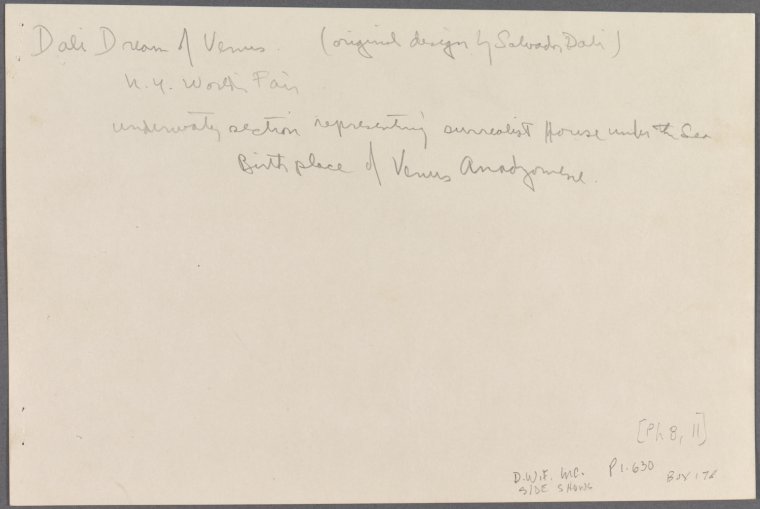 Dali Dream of Venus. (original design by Salvador Dali)
N.Y. World's Fair
underwater section representing surrealist House under the Sea
Birth place of Venus Anadyomene.
[Ph 8, II]
D.W.F. INC. P1.630 Box 178
SIDE SHOWS